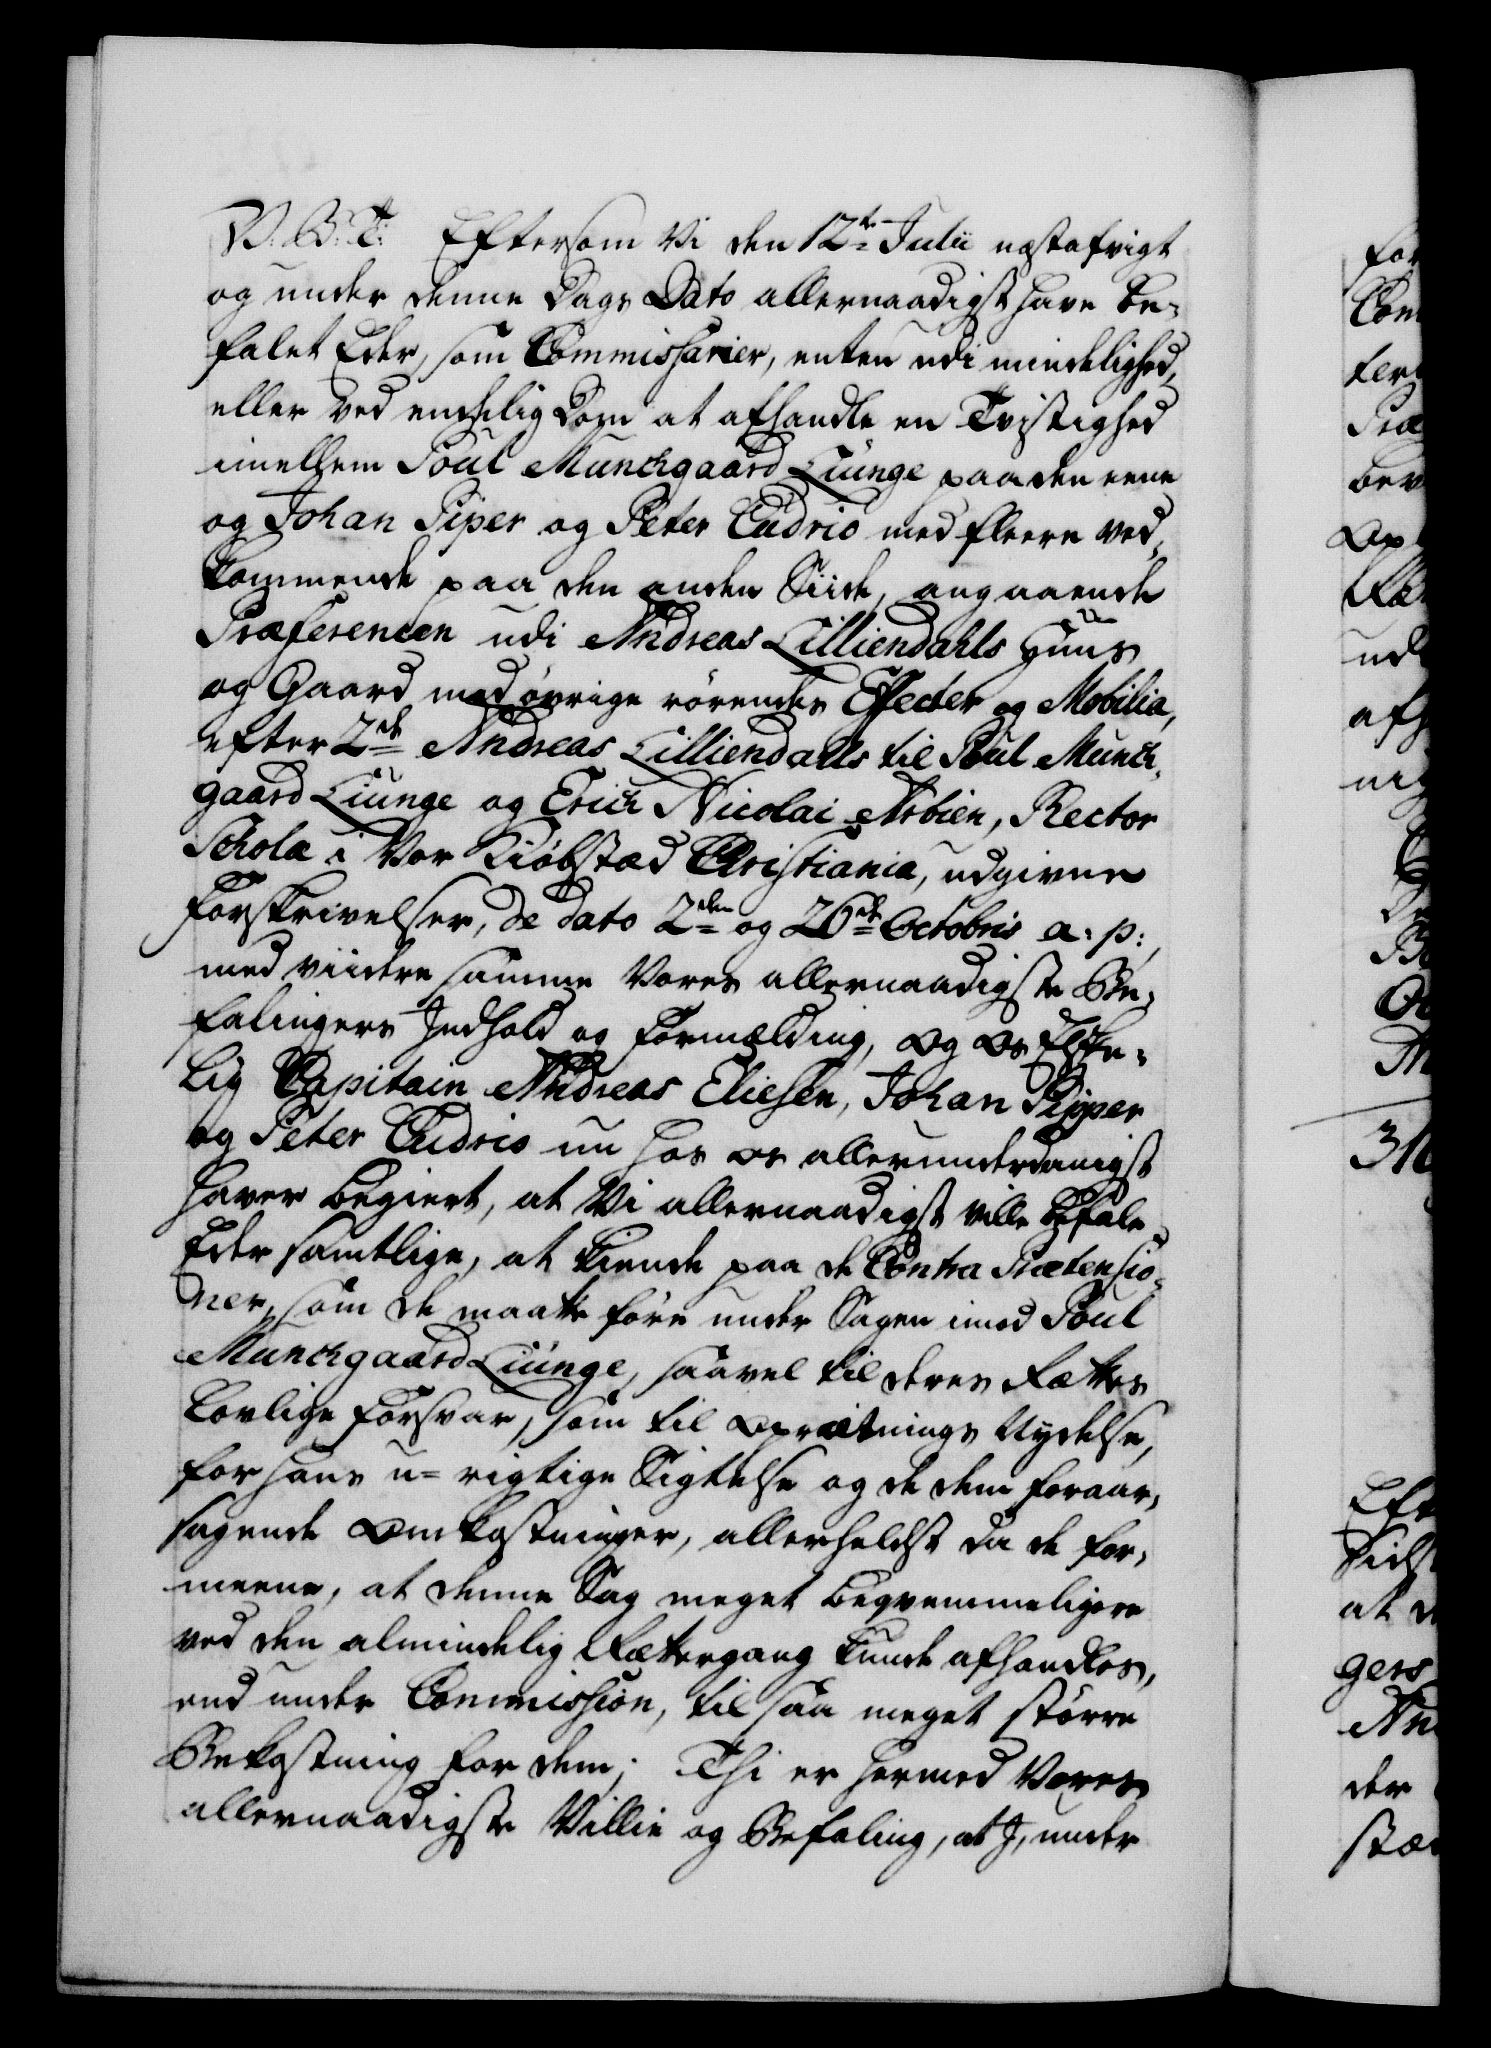 V. G. T. Eftersom Vi den 12te Julii næstafvigt
og under denne Dags Dato allernaadigst have be-
falet Eder, som Commissarier, enten udi mindelighed,
eller ved endelig Dom at afhandle en Tvistighed
imellem Poul Munchgaard Liunge paa den eene
og Johan Piper og Peter Cudrio med fleere ved-
kommende paa den anden Siide, angaaende
Præferencen udi Andreas Lilliendahls Huus
og Gaard med øvrige rörendes Effecter og Mobilia,
efter 2de Andreas Lilliendahls til Poul Munch-
gaard Liunge og Erich Nicolai Arbien, Rector
Scholæ i Vor Kiöbstæd Christiania, udgivne
Forskrivelser, de dato 2den og 26de Octobris a: p:,
med viidere samme Vores allernaadigste Be-
falingers Indhold og Formælding, og os
lig Capitain Andreas Eliesen, Johan Pipper
og Peter Cudrio nu hos os allerunderdanigst
haver begiert, at Vi allernaadigst ville befale
Eder samtlige, at kiende paa de Contra Prætensio-
ner, som de maatte före under Sagen imod Poul
Munchgaard Liunge, saavel til deres Rættes
Lovlige Forsvar, som til Oprætnings Nydelse,
for hans u-rigtige Sigtelse og de dem foraar-
sagende Omkostninger, allerheldst da de for-
meene, at denne Sag meget beqvemmeligere
ved den almindelig Rættergang kunde afhandles,
end under Commission, til saa meget större
Bekostning for dem; Thi er hermed Vores
allernaadigste Villie og Befaling, at I, under